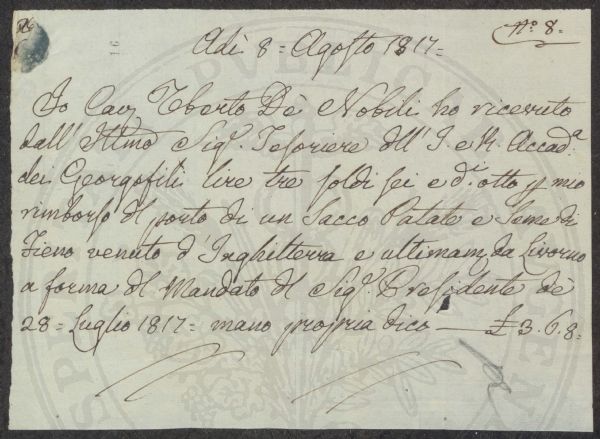 Nº. 8=
Adì 8= Agosto 1817=
Io Cav. Uberto De' Nobili ho ricevuto
dall' Illmo Sigr. Tesoriere dell' I. e R. Accada.
dei Georgofili lire tre soldi sei e di. otto p mio
rimborso del porto di un Sacco Patate e Seme di
Fieno venuto d'Inghilterra e ultimam. da Livorno
a forma del Mandato del Sigr. Presidente de'
28= Luglio 1817= mano propria dico — £ 3. 6. 8=